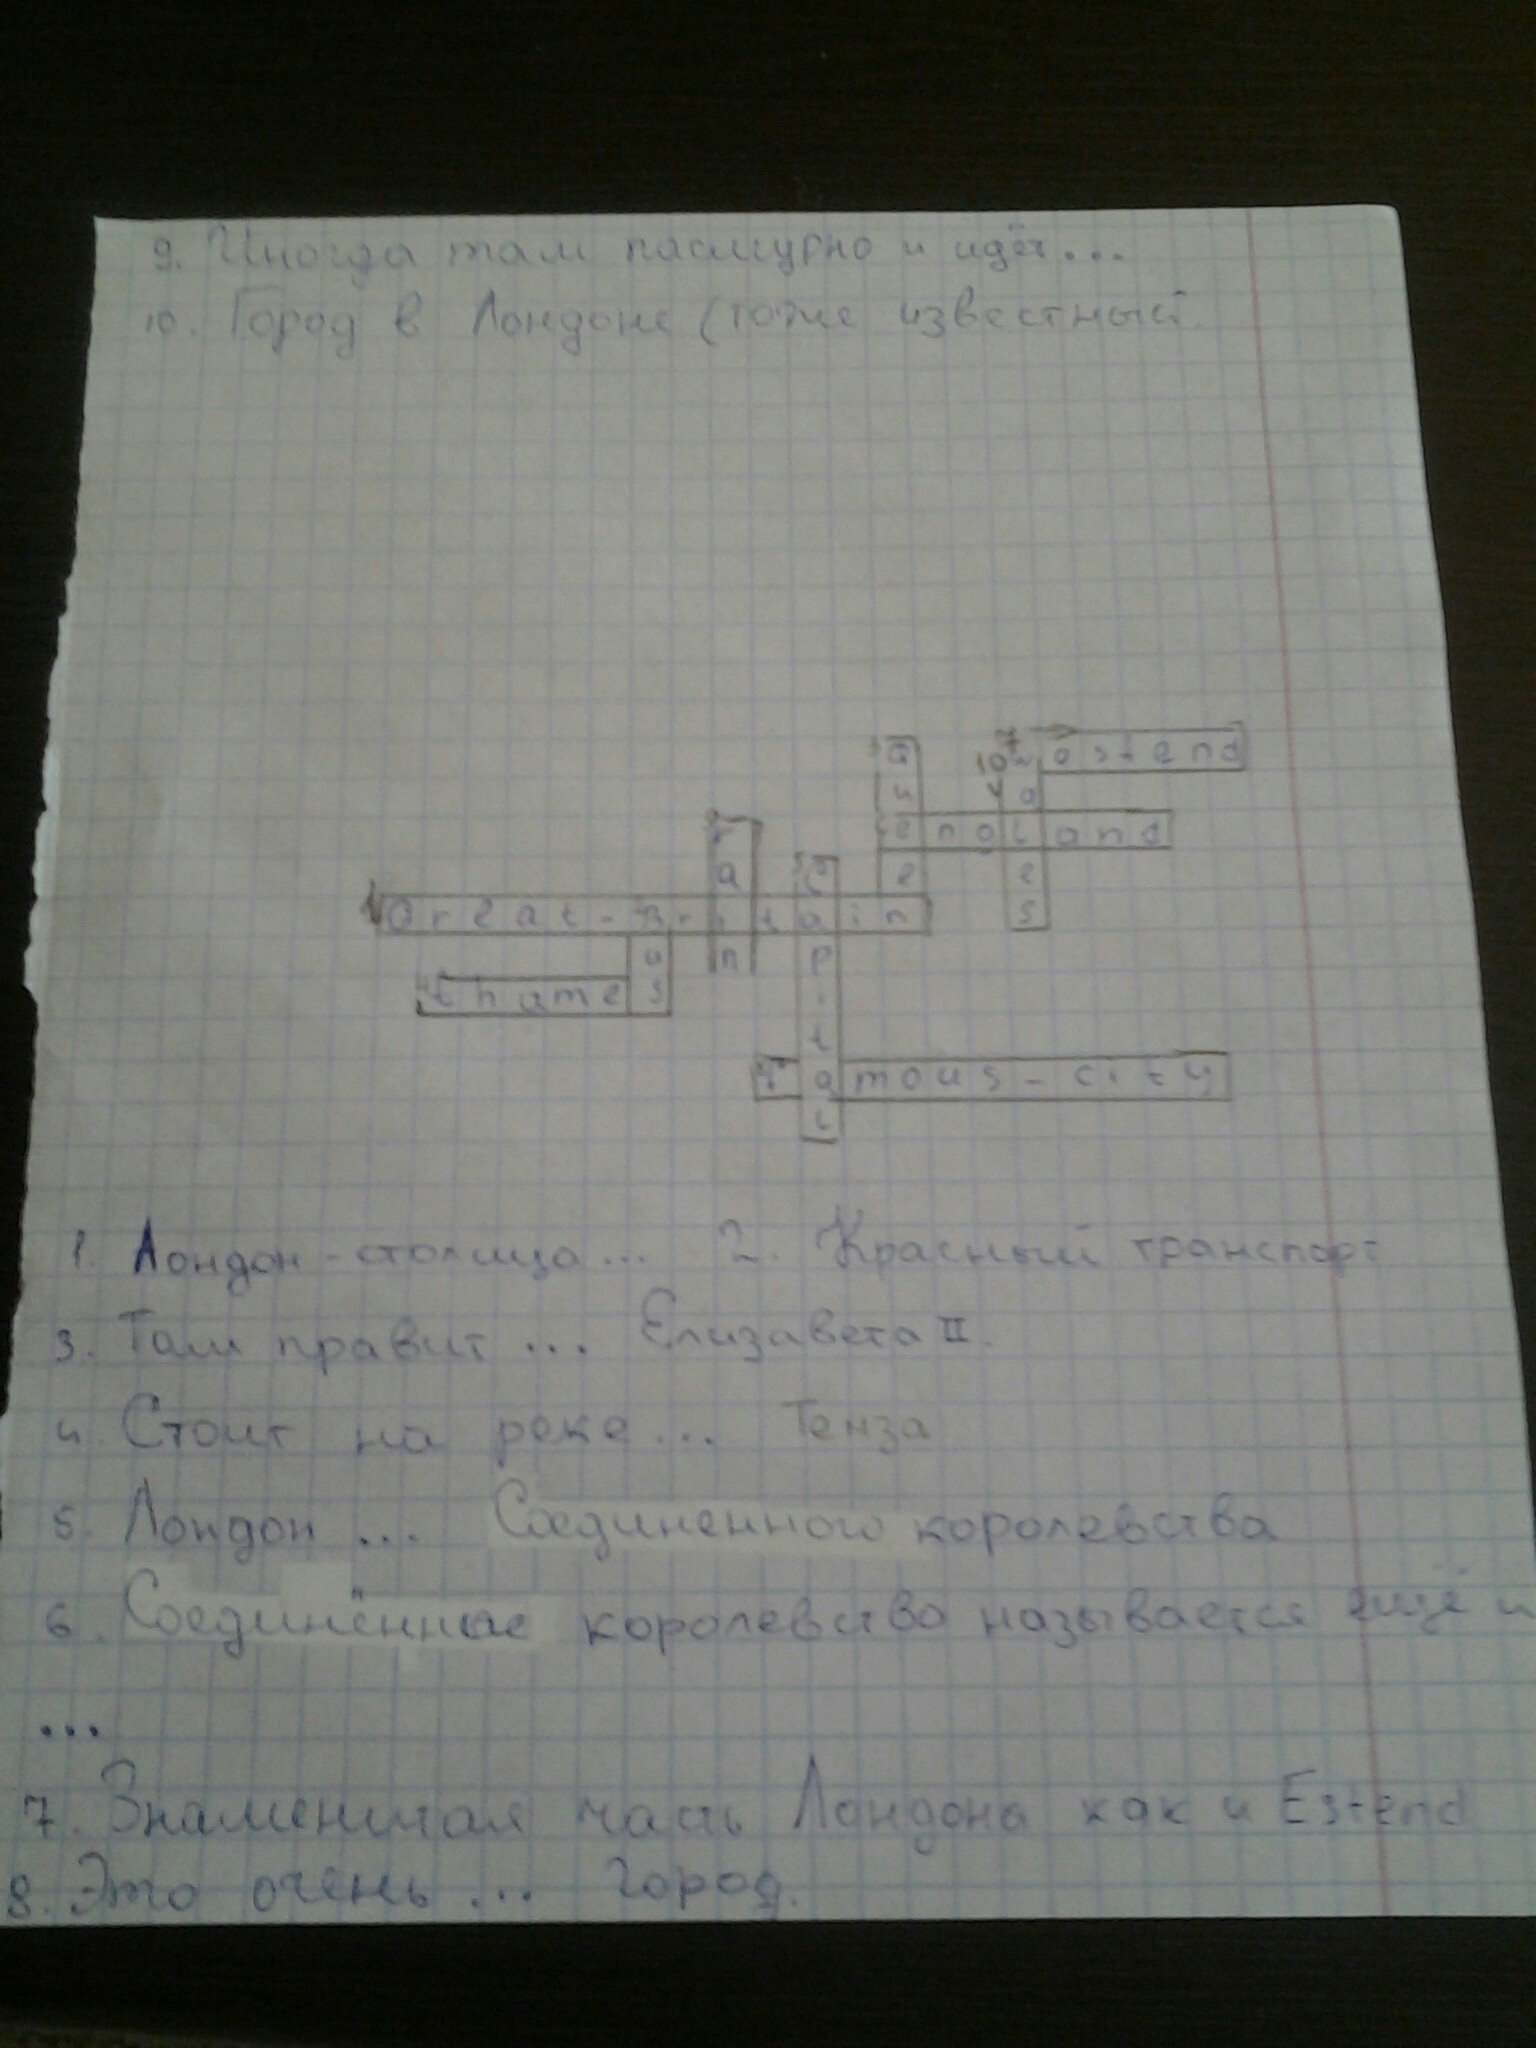 9. Иногда там пасмурно и идёт...
10. Город в Лондоне (тоже известный
Queen
westend
wales
england
rain
capital
Great-Britain
bus
thames
famous-city
1. Лондон - столица... 2. Красный транспорт
3. Там правит ... Елизавета II.
4. Стоит на реке... Темза
5. Лондон ... Соединенного королевства
6. Соединённые королевство называется ещё и
...
7. Знаменитая часть Лондона как и Estend
8. Это очень ... город.